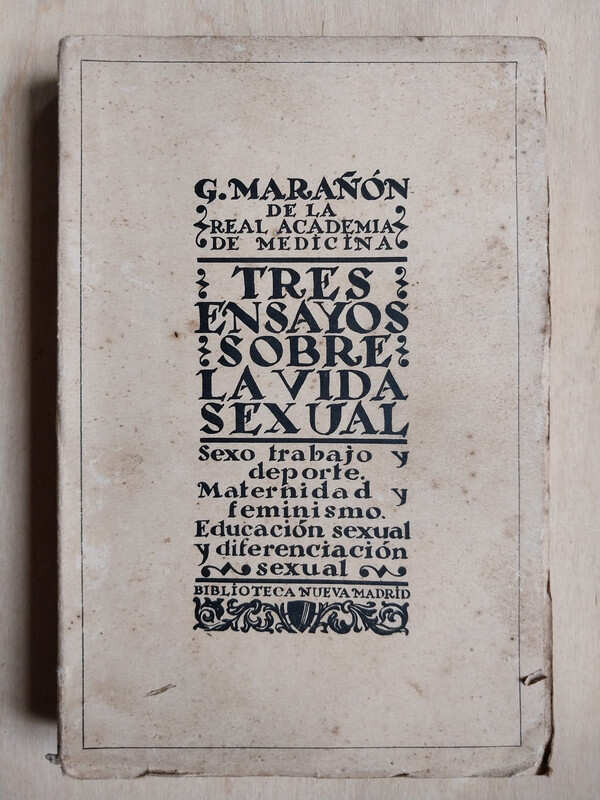 G. MARAÑÓN
DE LA
REAL ACADEMIA
DE MEDICINA
TRES
ENSAYOS
SOBRE
LA VIDA
SEXUAL
Sexo trabajo y
deporte.
Maternidad y
feminismo.
Educación sexual
y diferenciación
sexual
BIBLIOTECA NUEVA MADRID